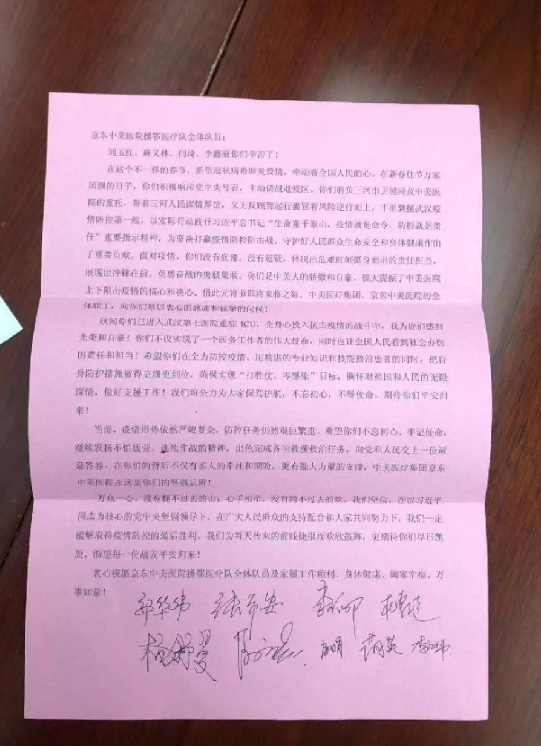 京东中美医院援鄂医疗队全体队员：
刘玉红、麻文林、闫琦、李鑫丽你们辛苦了！
在这个不一样的春节，新型冠状病毒肺炎疫情，牵动着全国人民的心。在新春佳节万家
团圆的日子，你们积极响应党中央号召，主动请战进疫区，你们肩负三河市卫健局及中美医
院的重托，带着三河人民深情厚谊，义无反顾背起行囊冒着风险逆行而上，千里驰援武汉疫
情防控第一线，以实际行动践行习近平总书记“生命重于泰山，疫情就是命令，防控就是责
任”重要指示精神，为坚决打赢疫情防控阻击战、守护好人民群众生命安全和身体健康作出
了重要贡献。面对疫情，你们没有犹豫，没有退缩，体现出危难时刻挺身而出的责任担当，
展现出冲锋在前、英勇奋战的勇毅果敢。你们是中美人的骄傲和自豪，极大提振了中美医院
上下阻击疫情的信心和决心。值此元宵节即将来临之际，中美医疗集团、京东中美医院的全
体职工，向你们致以衷心的感谢和诚挚的问候！
欣闻你们已进入武汉第七医院重症 ICU，全身心投入抗击疫情的战斗中，我为你们感到
光荣和自豪！你们不仅实现了一个医务工作者的伟大使命，同时也让全国人民看到社会办医
的责任和担当！希望你们在全力防控疫情、用精湛的专业知识和技能救治患者的同时，把自
身防护措施做得更细更到位，确保实现“打胜仗、零感染”目标，胸怀对祖国和人民的无限
深情，做好支援工作！我们将全力为大家保驾护航，不忘初心，不辱使命，期待你们平安归
来！
当前，疫情形势依然严峻复杂，防控任务仍然艰巨繁重。希望你们不忘初心、牢记使命，
继续发扬不怕疲劳、连续作战的精神，出色完成各项救援救治任务，向党和人民交上一份满
意答卷。在你们的背后不仅有家人的牵挂和期盼，更有强大力量的支撑，中美医疗集团京东
中美医院永远是你们的坚强后盾！
万众一心，没有翻不过去的山；心手相牵，没有跨不过去的坎。我们坚信，在以习近平
同志为核心的党中央坚强领导下，在广大人民群众的支持配合和大家共同努力下，我们一定
能够取得疫情防控的最后胜利。我们为每天传来的前线捷报而欢欣鼓舞，更期待你们早日凯
旋，盼望每一位战友平安归来！
衷心祝愿京东中美医院援鄂医疗队全体队员及家属工作顺利、身体健康、阖家幸福、万
事如意！